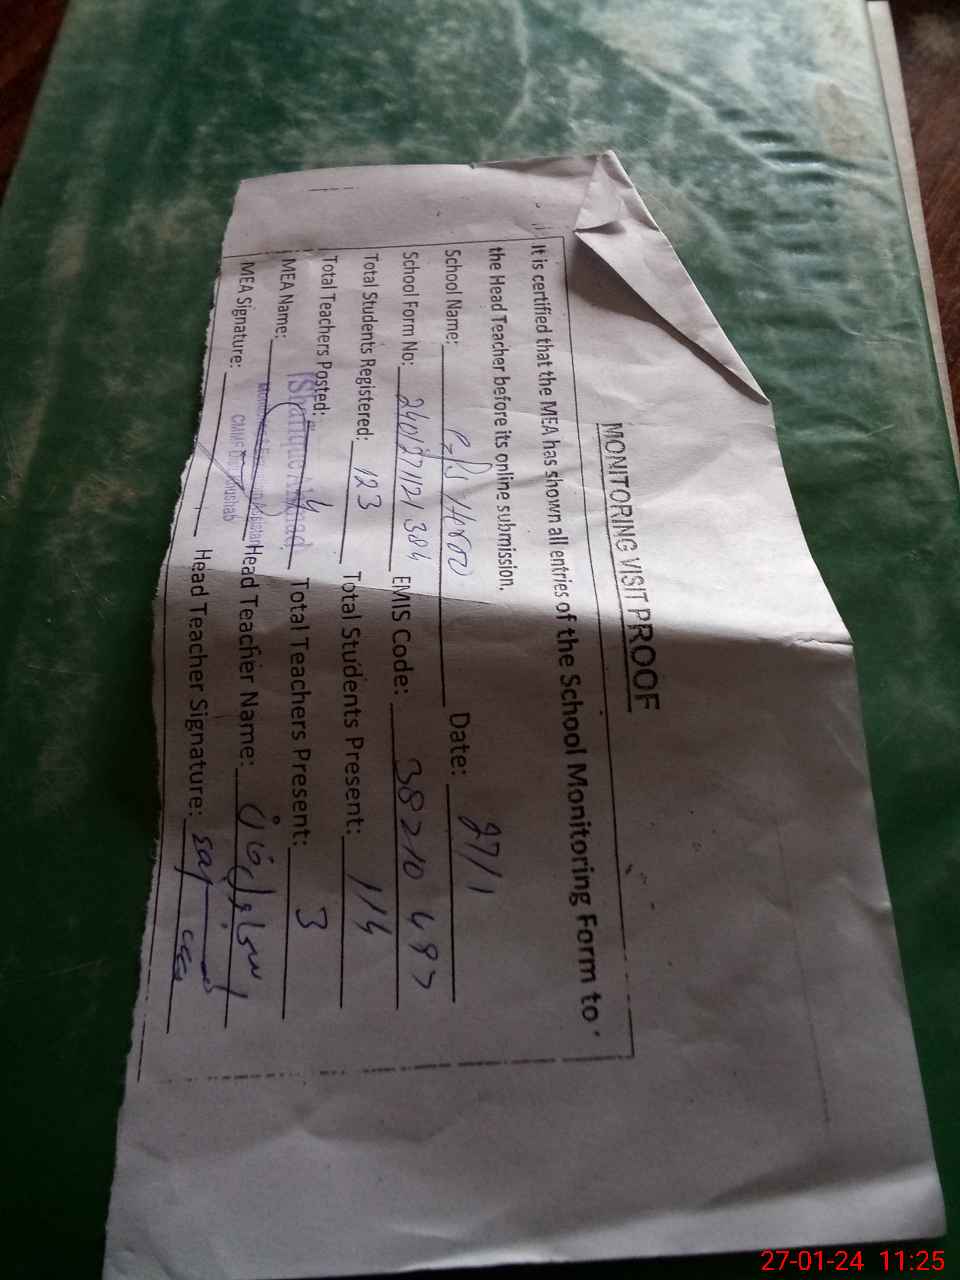 MONITORING VISIT PROOF
It is certified that the MEA has shown all entries of the School Monitoring Form to
the Head Teacher before its online submission.
School Name: Date: 27/1
School Form No: 2401271121384 EMIS Code: 38210487
Total Students Registered: 123 Total Students Present: 114
Total Teachers Posted: 4 Total Teachers Present: 3
MEA Name: Ishtiaque Ahmad Head Teacher Name:
MEA Signature: Head Teacher Signature:
27-01-24 11:25